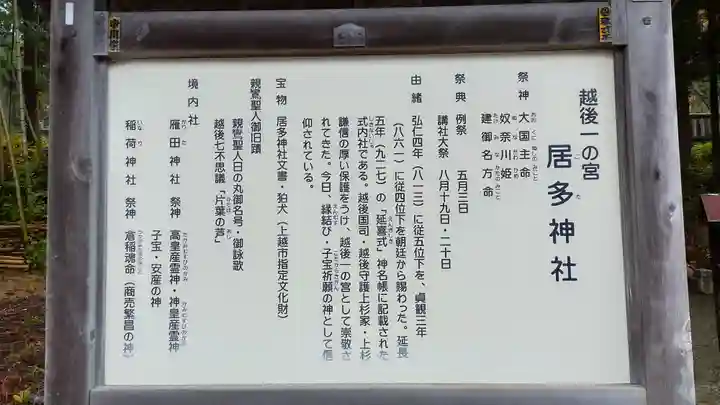 越後一の宮
居多神社
祭神 大国主命
奴奈川姫
建御名方命
祭典 例祭 五月三日
講社大祭 八月十九日・二十日
由緒 弘仁四年(八一三)に従五位下を、貞観三年
(八六一)に従四位下を朝廷から賜わった。延長
五年(九二七)の「延喜式」神名帳に記載された
式内社である。越後国司・越後守護上杉家・上杉
謙信の厚い保護をうけ、越後一の宮として崇敬さ
れてきた。今日、縁結び・子宝祈願の神として信
仰されている。
宝物 居多神社文書・狛犬(上越市指定文化財)
親鸞聖人御旧蹟
親鸞聖人日の丸御名号・御詠歌
越後七不思議「片葉の芦」
境内社
雁田神社 祭神 高皇産霊神・神皇産霊神
子宝・安産の神
稲荷神社 祭神 倉稲魂命(商売繁昌の神)